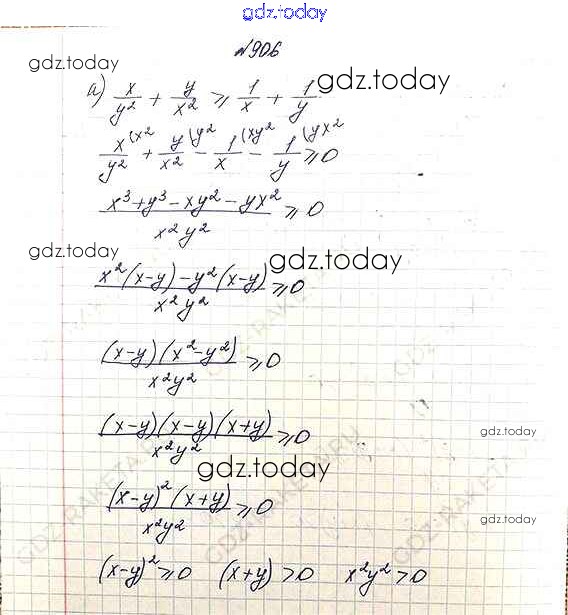 gdz.today
№906
gdz.today
gdz.today
а) x/y² + y/x² ⩾ 1/x + 1/y
x/y² (x² + y/x² \y² - 1/x (xy² - 1/y (yx² ⩾ 0
(x³+y³-xy²-yx²)/(x²y²) ⩾ 0
gdz.today
gdz.today
(x²(x-y)-y²(x-y))/(x²y²) ⩾ 0
((x-y)(x²-y²))/(x²y²) ⩾ 0
((x-y)(x-y)(x+y))/(x²y²) ⩾ 0
gdz.today
gdz.today
((x-y)²(x+y))/(x²y²) ⩾ 0
gdz.today
(x-y)² ⩾ 0 (x+y) > 0 x²y² > 0